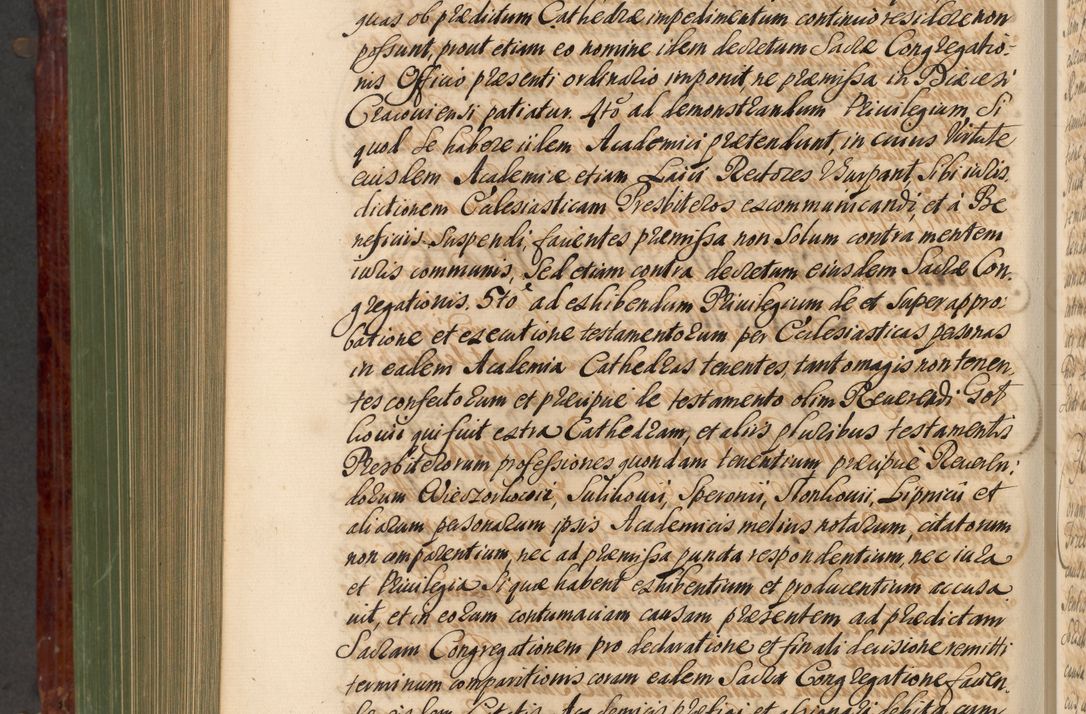 quas ob prædictum Cathedræ impedimentum continuo residere non
possunt, prout etiam eo nomine idem decretum Sacræ Congregatio-
nis Officio præsenti ordinario imponit, ne præmissa in Diæcesi
Cracoviensi patiatur. 4to ad demonstrandum Privilegium, Si
quod se habere iidem Academici prætendunt, in cuius Virtute
eiusdem Academiæ etiam Laici Rectores Usurpant Sibi iuris
dictionem Ecclesiasticam Presbiteros excommunicandi, et à Be
neficiis Suspendi, facientes præmissa non Solum contra mentem
iuris communis, Sed etiam contra decretum eiusdem Sacræ Con-
gregationis. 5to ad exhibendum Privilegium de et Super appro-
batione et executione testamentorum per Ecclesiasticas personas
in eadem Academia Cathedras tenentes, tanto magis non tenen-
tes confectorum et præcipue de testamento olim Reverendi Got
kovii qui fuit extra Cathedram, et aliis pluribus testamentis
Presbiterorum professiones quondam tenentium, præcipuè Reveren-
dorum Wieszorkovii, Sulikovii, Speronii, Stonkovii, Lipnicii et
aliarum personarum ipsis Academicis melius notarum, citatorum
non comparentium, nec ad præmissa puncta respondentium, nec iura
et Privilegia Si quæ habent exhibentium et producentium accusa
vit, et in eorum contumaciam causam præsentem ad prædictam
Sacram Congregationem pro declaratione et finali decisione remitti
terminum comparitionis coram eadem Sacra Congregatione facien-